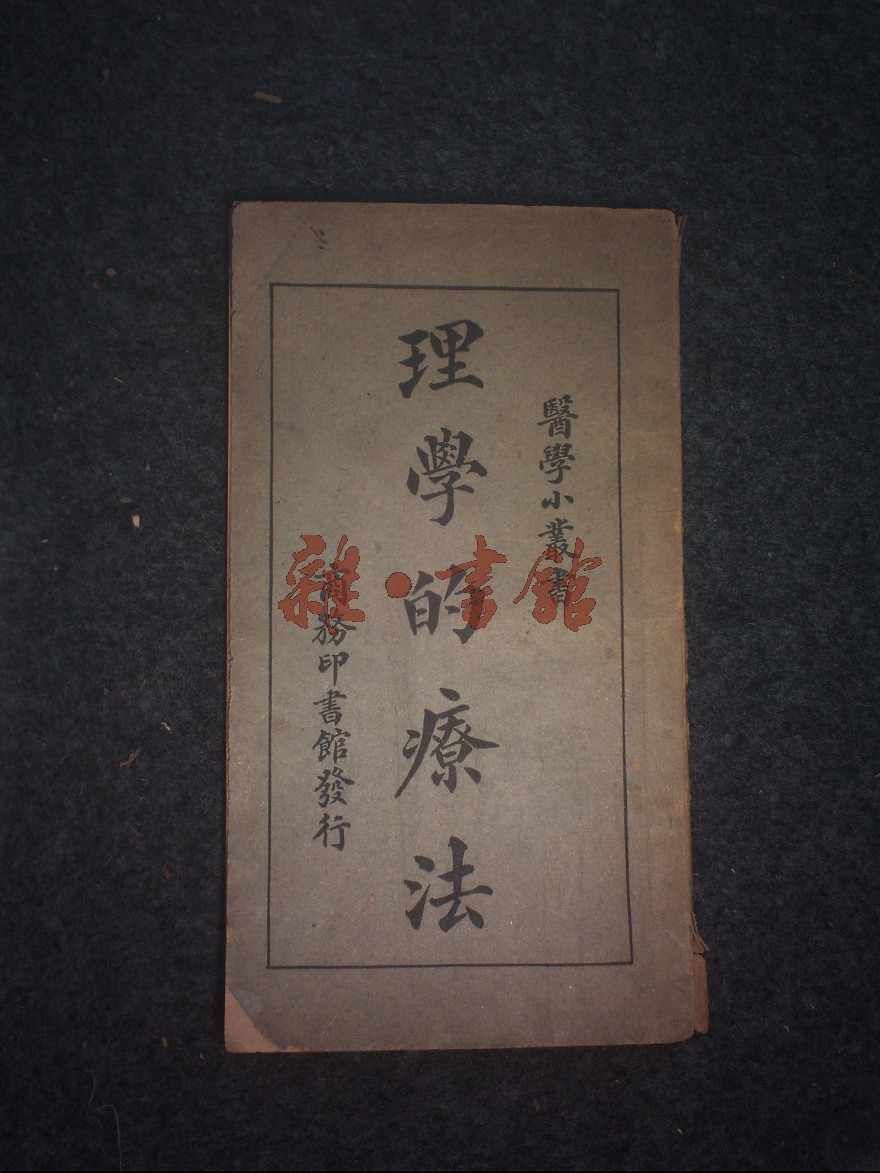 醫學小叢書
理學的療法
商務印書館發行
雜·書館